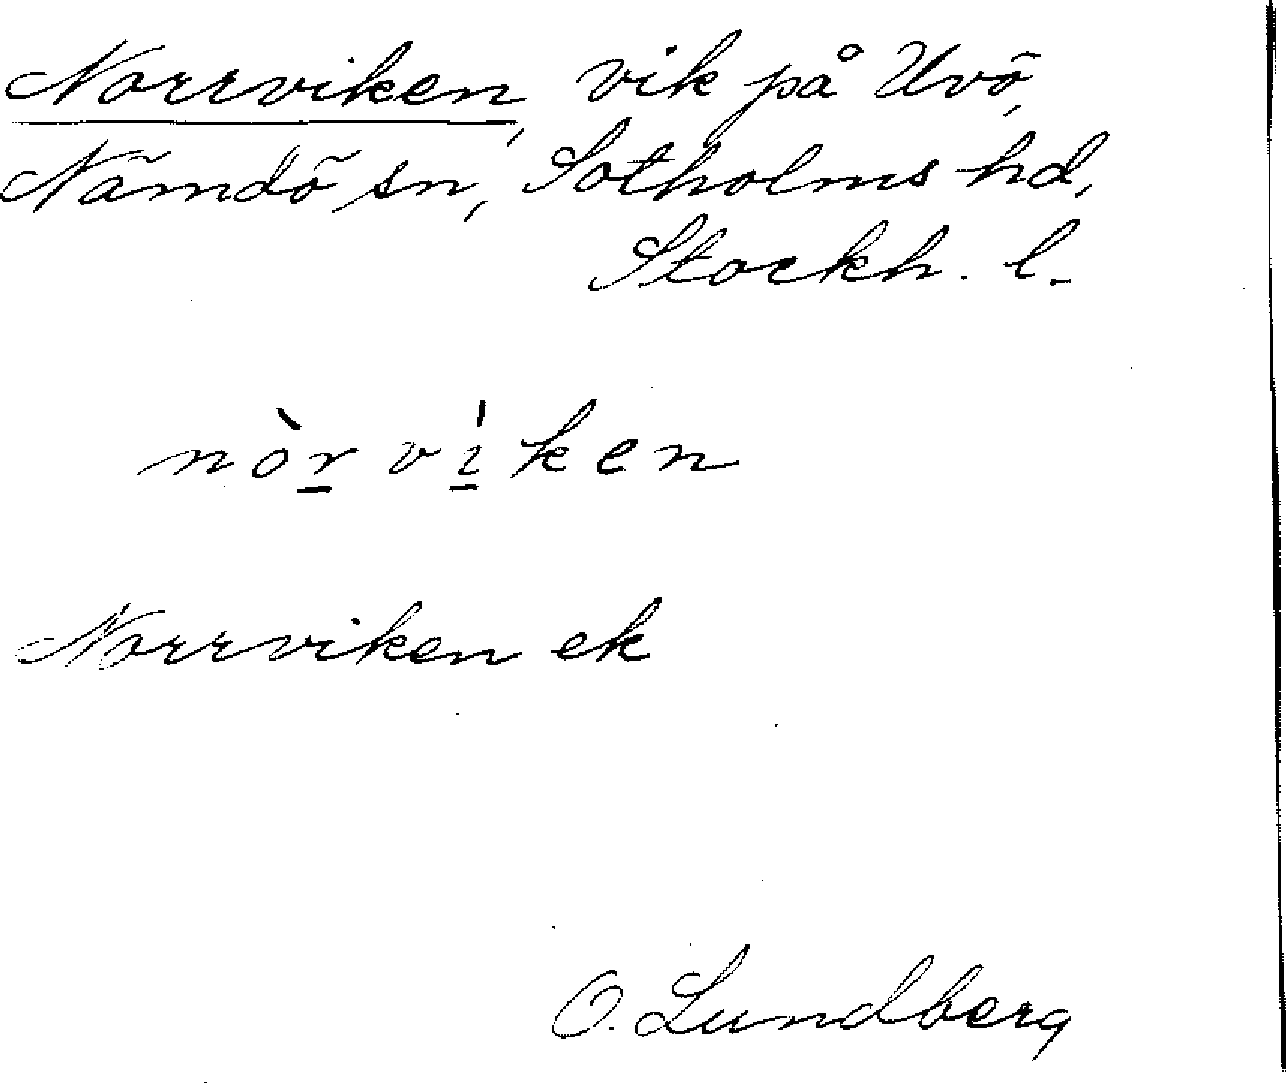 Norrviken, vik på Uvö,
Nämdö sn, Sotholms hd,
Stockh. l.
nòrvíken
Norrviken ek
O. Lundberg